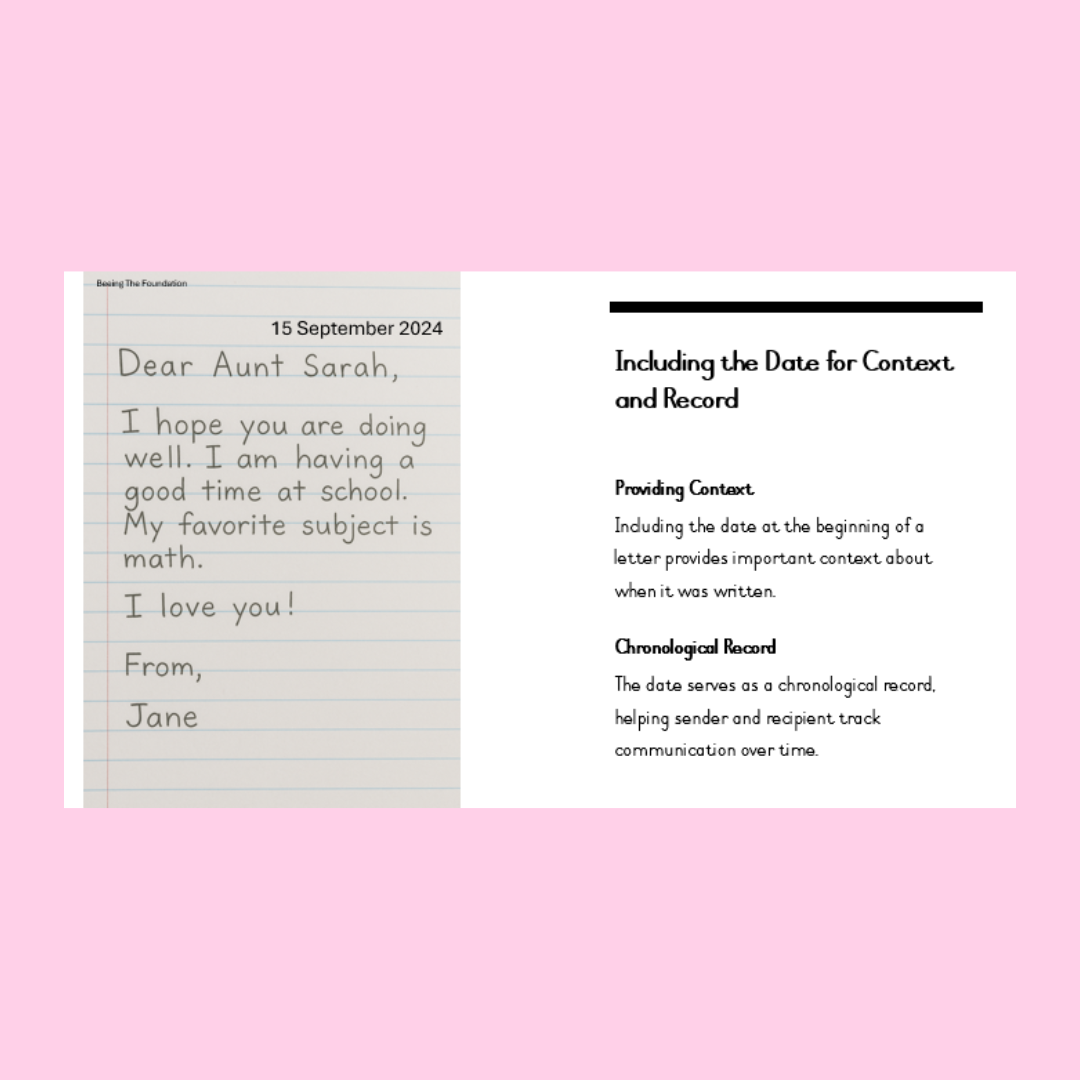 Beeing The Foundation
15 September 2024
Dear Aunt Sarah,
I hope you are doing
well. I am having a
good time at school.
My favorite subject is
math.
I love you!
From,
Jane
Including the Date for Context
and Record
Providing Context
Including the date at the beginning of a
letter provides important context about
when it was written.
Chronological Record
The date serves as a chronological record,
helping sender and recipient track
communication over time.